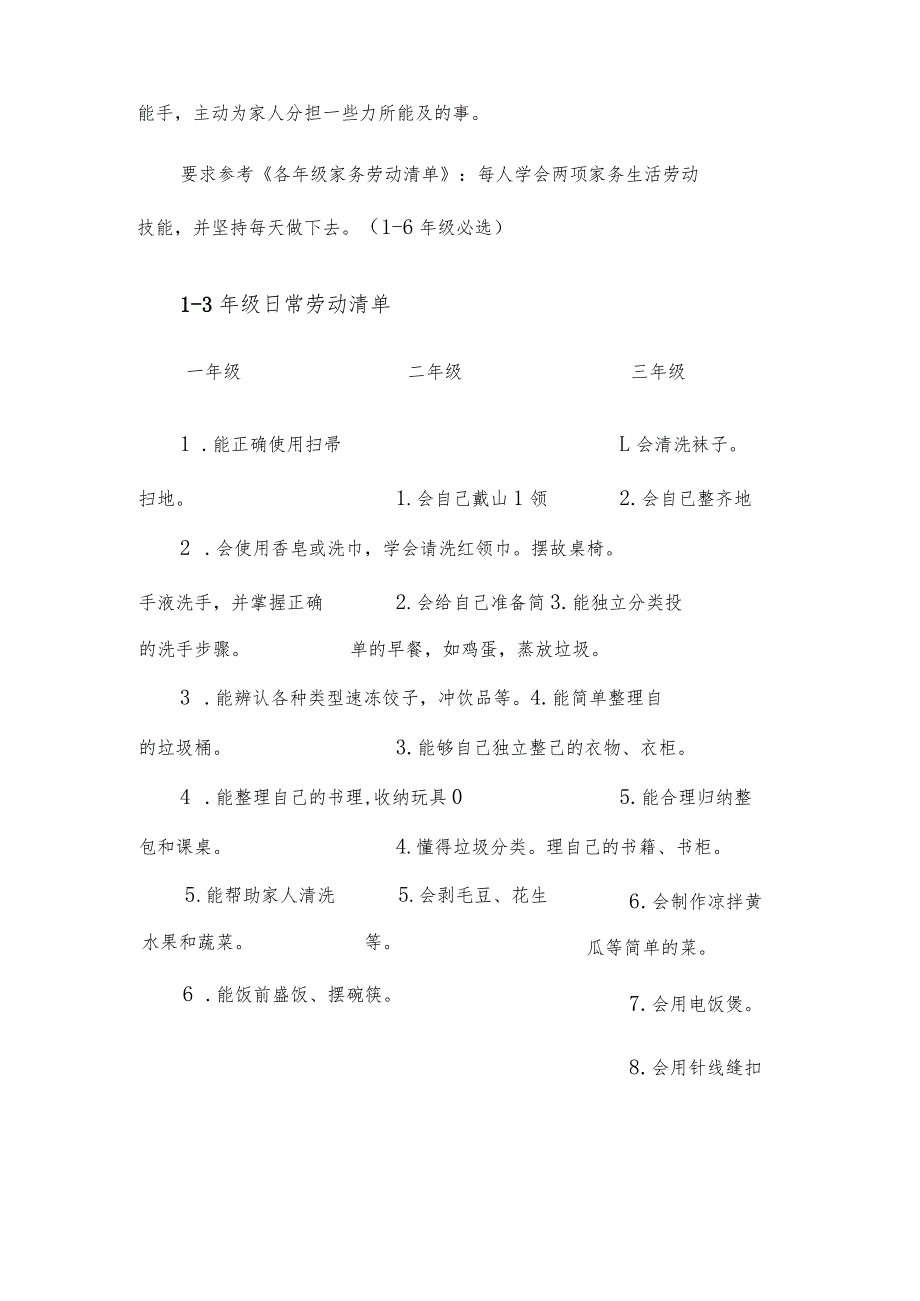 能手，主动为家人分担一些力所能及的事。
要求参考《各年级家务劳动清单》：每人学会两项家务生活劳动
技能，并坚持每天做下去。（1-6 年级必选）
1-3 年级日常劳动清单
一年级 二年级 三年级
1 .能正确使用扫帚 L 会清洗袜子。
扫地。 1.会自己戴山 1 领 2.会自已整齐地
2 .会使用香皂或洗巾，学会请洗红领巾。摆故桌椅。
手液洗手，并掌握正确 2.会给自己准备简 3.能独立分类投
的洗手步骤。 单的早餐，如鸡蛋，蒸放垃圾。
3 .能辨认各种类型速冻饺子，冲饮品等。4.能简单整理自
的垃圾桶。 3.能够自己独立整己的衣物、衣柜。
4 .能整理自己的书理,收纳玩具 0 5.能合理归纳整
包和课桌。 4.懂得垃圾分类。理自己的书籍、书柜。
5.能帮助家人清洗 5.会剥毛豆、花生 6.会制作凉拌黄
水果和蔬菜。 等。 瓜等简单的菜。
6 .能饭前盛饭、摆碗筷。 7.会用电饭煲。
8.会用针线缝扣